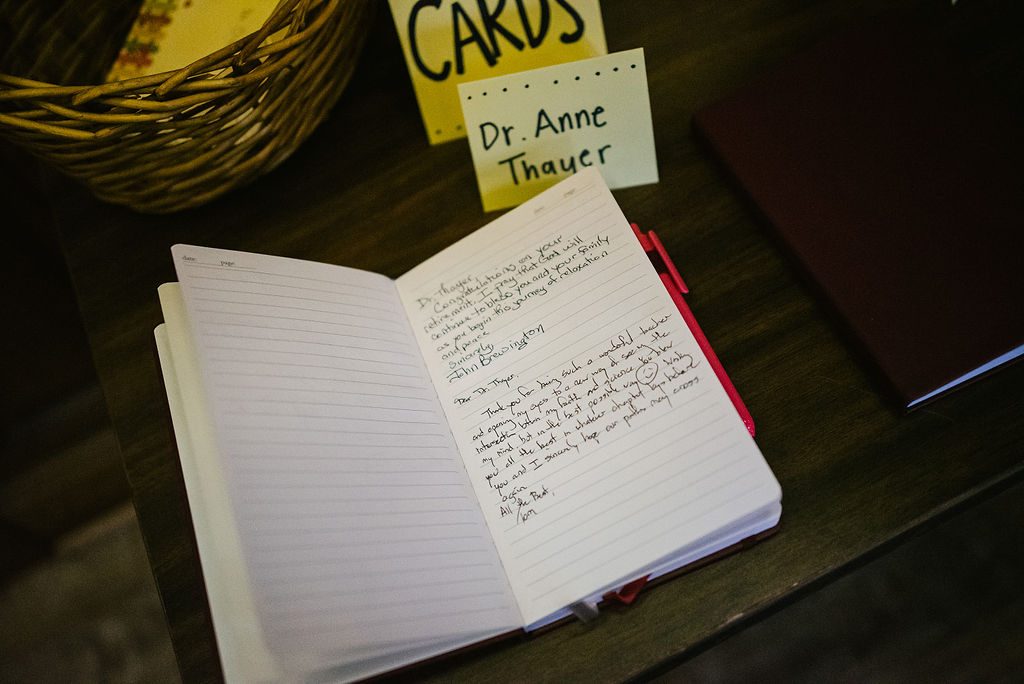 CARDS
Dr. Anne
Thayer
date: page:
date: page:
Dr. Thayer,
Congratulations on your
retirement, I pray that God will
continue to bless you and your family
as you begin this journey of relaxation
and peace
Sincerely,
John Brewington
Dear Dr. Thayer,
Thank you for being such a wonderful teacher
and opening my eyes to a new way of seeing the
intersection between my faith and science. You blew
my mind, but in the best possible way ☺ Wishing
you all the best in whatever chapter lays before
you and I sincerely hope our paths may cross
again
All the Best,